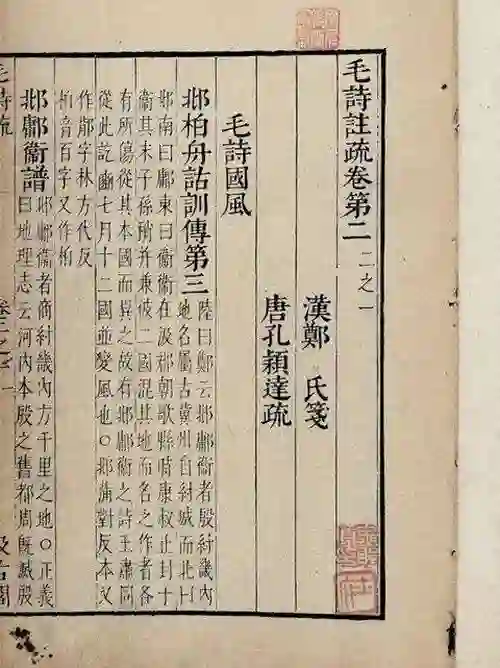 毛詩註疏卷第二 二之一
漢鄭 氏箋
唐孔穎達疏
毛詩國風
邶柏舟詁訓傳第三 陸曰鄭云邶鄘衞者殷紂畿內
地名屬古冀州自紂城而北曰
邶南曰鄘東曰衞衞在汲郡朝歌縣時康叔止封十
衞其末子孫稍并兼彼二國混其地而名之作者各
有所傷從其本國而異之故有邶鄘衞之詩王肅同
從此訖豳七月十二國並變風也○邶蒲對反本又
作鄁字林方代反
柏音百字又作栢
邶鄘衞譜 邶鄘衞者商紂畿內方千里之地○正義
曰地理志云河內本殷之舊都周既滅殷
毛詩疏 卷二之一 汲古閣